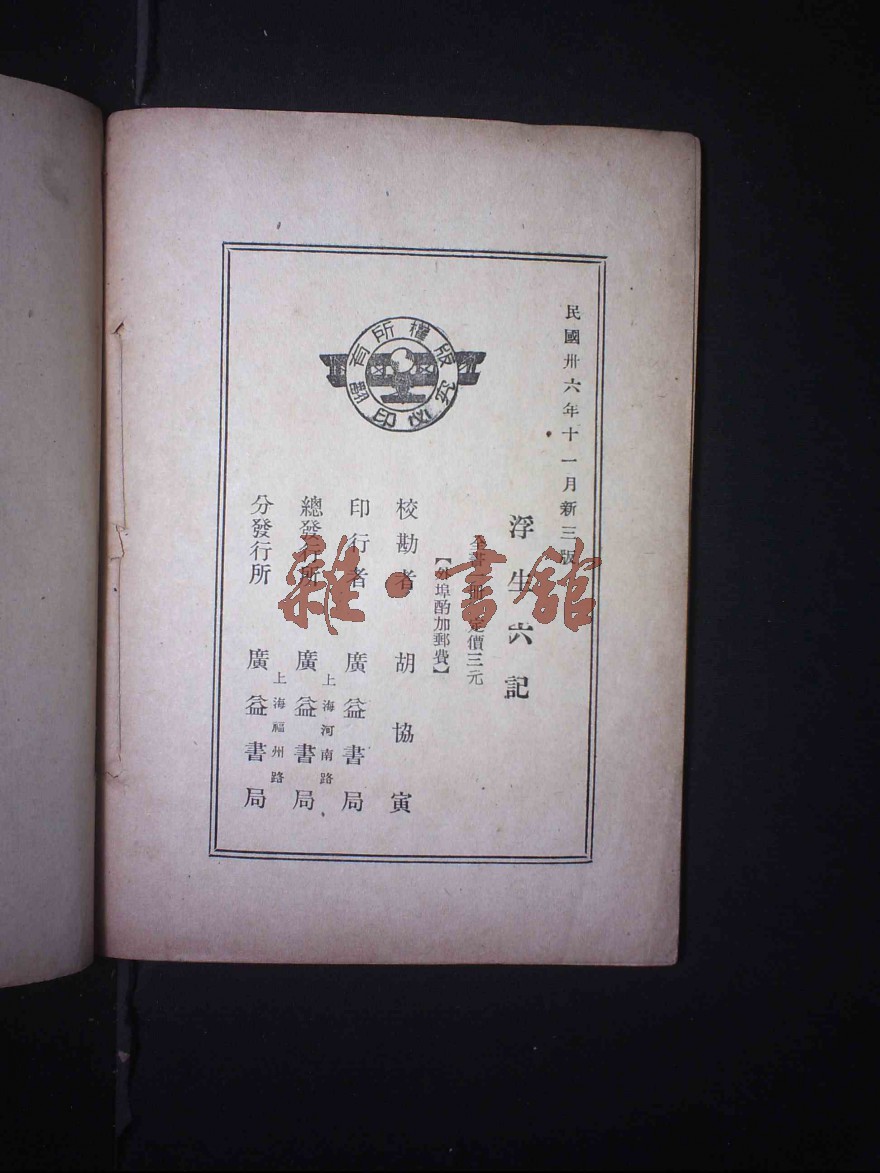 民國卅六年十一月新三版
浮生六記
全書一冊 定價三元
【外埠酌加郵費】
校勘者 胡協寅
印行者 廣益書局
上海河南路
總發行所 廣益書局
上海福州路
分發行所 廣益書局
版權所有
翻印必究
雜·書館